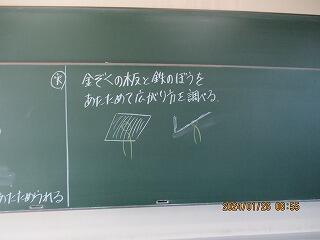 実 金ぞくの板と鉄のぼうを
あたためて広がり方を調べる.
あたためられる
2024/01/26 08:55